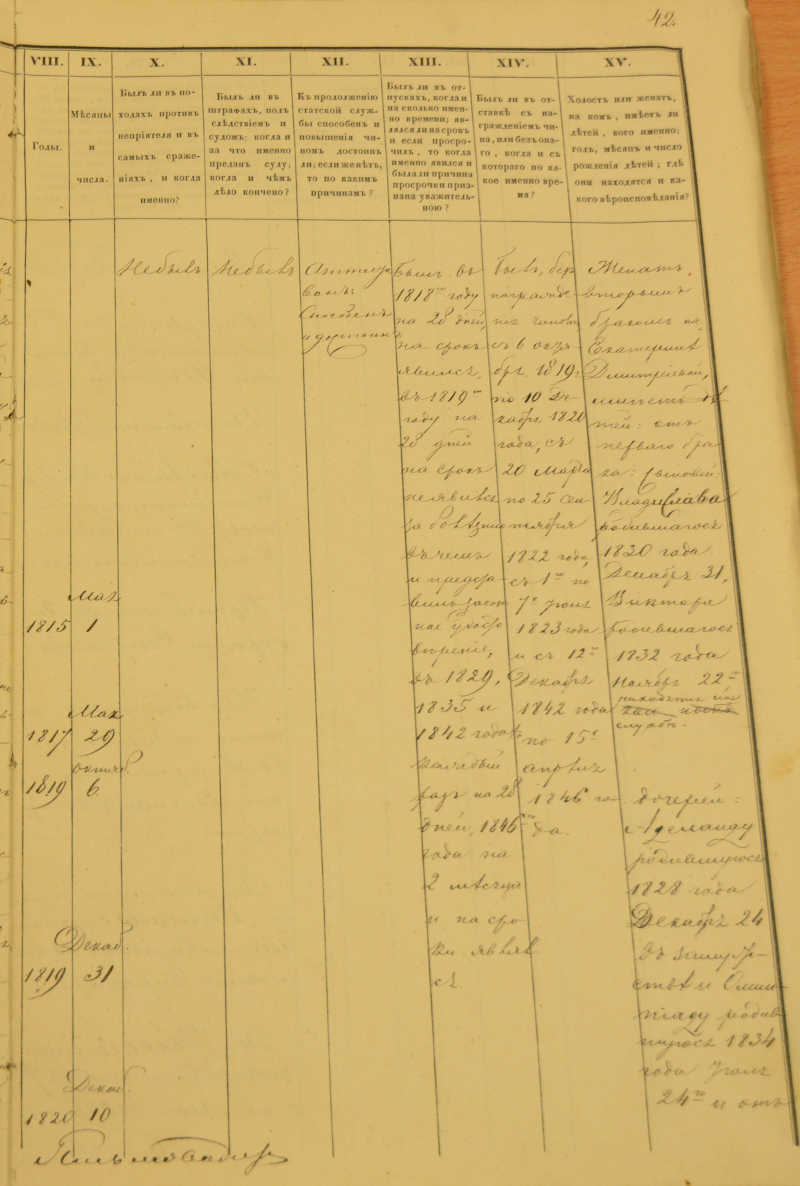 42.
VIII.
IX.
X.
XI.
XII.
XIII.
XIV.
XV.
Годы.
Мѣсяцы
и
числа.
Былъ ли въ по-
ходахъ противъ
непріятеля и въ
самыхъ сраже-
ніяхъ, и когда
именно?
Былъ ли въ
штрафахъ, подъ
слѣдствіемъ и
судомъ; когда и
за что именно
преданъ суду;
когда и чѣмъ
дѣло кончено?
Къ продолженію
статской служ-
бы способенъ и
повышенія чи-
номъ достоинъ
ли; если же нѣтъ,
то по какимъ
причинамъ?
Былъ ли въ от-
пускахъ, когда и
на сколько имен-
но времени; яв-
лялся ли на срокъ
и если просро-
чилъ, то когда
именно явился и
была ли причина
просрочки приз-
нана уважитель-
ною?
Былъ ли въ от-
ставкѣ съ на-
гражденіемъ чи-
на, или безъ она-
го, когда и съ
котораго по ка-
кое именно вре-
мя?
Холостъ или женатъ,
на комъ, имѣетъ ли
дѣтей, кого именно;
годъ, мѣсяцъ и число
рожденія дѣтей; гдѣ
они находятся и ка-
кого вѣроисповѣданія?
Мая
1815 1
Мая
1817 29
1819 6
Декаб.
1819 31
Декаб.
1820 10
Небылъ
Небылъ
Способенъ
и достоинъ
Былъ въ
1818 году
на 28 дней
на срокъ
явился,
въ 1819
году на
28 дней
на срокъ
неявился
за болѣзнію
въ чемъ
и предста
вилъ
въ 1829,
1835 и
1842 годахъ
на 28
дней, 1846
года на
2 мѣсяца
и на сро
ки являл
ся.
Былъ, безъ
награжде
нія чиномъ
съ 6 октя
бря 1819
по 10 Де-
кабря 1820
года, съ
20 Марта
по 25 Сен
тября
1822 года,
съ 1 по
7 Іюня
1823 года
и съ 12
Декабря
1842 года
по 15
Апрѣля
1846 го-
да.
Женатъ,
вторымъ
бракомъ на
Екатеринѣ
Дмитріевой,
имѣетъ дѣ
тей: отъ
перваго бра
ка: сыновей
Владислава
родившагося
1820 года
Декабря 31,
Виктора
родившагося
1832 года
Ноября 22
находятся на
службѣ.
дочерей:
родившуюся
1828 года
Декабря 24
въ замуже-
ствѣ и
родив
шуюся 1834
года Іюня
24 и отъ